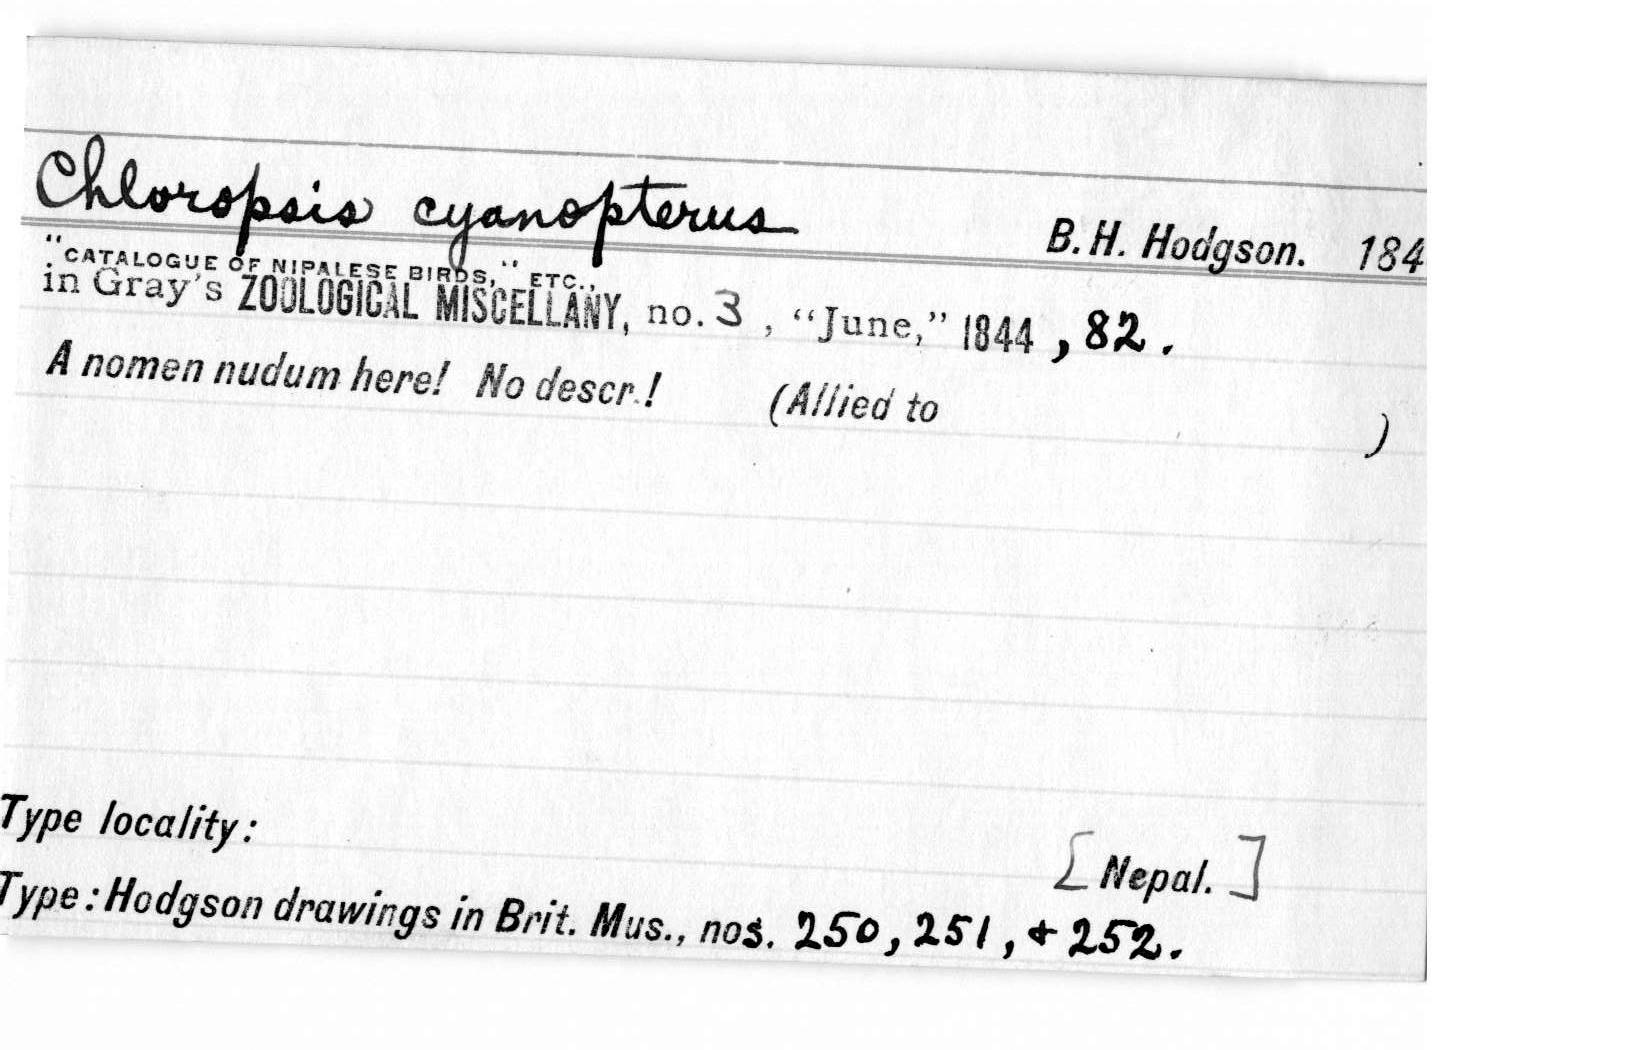 Chloropsis cyanopterus B. H. Hodgson. 184
"CATALOGUE OF NIPALESE BIRDS," ETC.,
in Gray's ZOOLOGICAL MISCELLANY, no. 3, "June," 1844, 82.
A nomen nudum here! No descr.! (Allied to )
Type locality: [Nepal.]
Type: Hodgson drawings in Brit. Mus., nos. 250, 251, & 252.